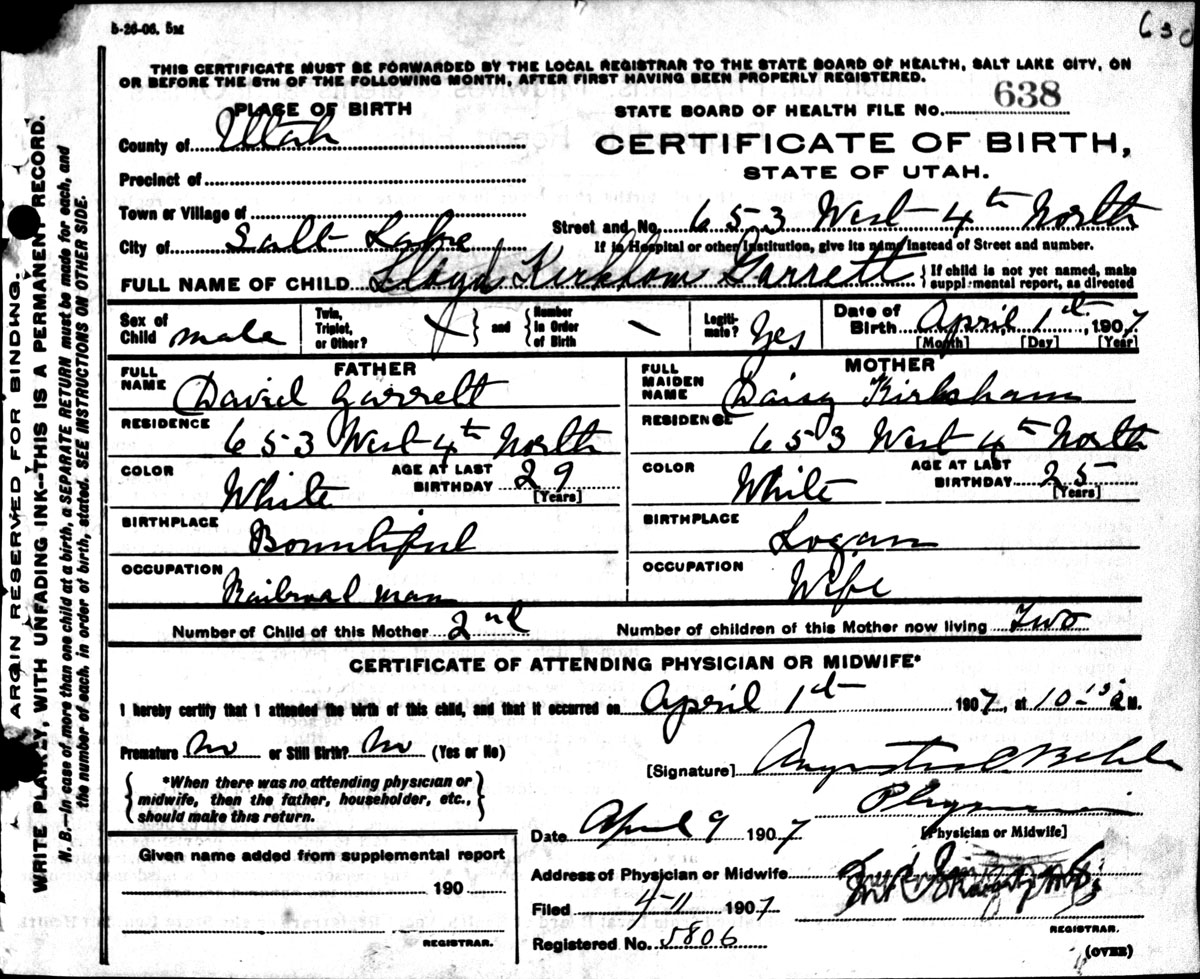 5-26-06. 5M
630
THIS CERTIFICATE MUST BE FORWARDED BY THE LOCAL REGISTRAR TO THE STATE BOARD OF HEALTH, SALT LAKE CITY, ON
OR BEFORE THE 5TH OF THE FOLLOWING MONTH, AFTER FIRST HAVING BEEN PROPERLY REGISTERED.
PLACE OF BIRTH
County of Utah
Precinct of
Town or Village of
City of Salt Lake
STATE BOARD OF HEALTH FILE No. 638
CERTIFICATE OF BIRTH,
STATE OF UTAH.
Street and No. 653 West 4th North
If in Hospital or other Institution, give its name instead of Street and number.
FULL NAME OF CHILD Lloyd Kirkham Garrett { If child is not yet named, make
supplemental report, as directed
Sex of
Child male
Twin,
Triplet,
or Other? X } and { Number
in Order
of Birth –
Legiti-
mate? Yes
Date of
Birth April 1st, 1907
[Month] [Day] [Year]
FATHER
FULL
NAME David Garrett
RESIDENCE 653 West 4th North
COLOR White AGE AT LAST
BIRTHDAY 29
[Years]
BIRTHPLACE Bountiful
OCCUPATION Railroad man
MOTHER
FULL
MAIDEN
NAME Daisy Kirkham
RESIDENCE 653 West 4th North
COLOR White AGE AT LAST
BIRTHDAY 25
[Years]
BIRTHPLACE Logan
OCCUPATION Wife
Number of Child of this Mother 2nd Number of children of this Mother now living Two
CERTIFICATE OF ATTENDING PHYSICIAN OR MIDWIFE*
I hereby certify that I attended the birth of this child, and that it occurred on April 1st 1907, at 10 15 a M.
Premature No or Still Birth? No (Yes or No)
{ *When there was no attending physician or
midwife, then the father, householder, etc.,
should make this return. }
[Signature] Augustus C Behle
Physician
[Physician or Midwife]
Date April 9 1907
Given name added from supplemental report
190
REGISTRAR.
Address of Physician or Midwife
Filed 4-11 1907
REGISTRAR.
Registered No. 5806
(OVER)
MARGIN RESERVED FOR BINDING.
WRITE PLAINLY, WITH UNFADING INK—THIS IS A PERMANENT RECORD.
N. B.—In case of more than one child at a birth, a SEPARATE RETURN must be made for each, and
the number of each, in order of birth, stated. SEE INSTRUCTIONS ON OTHER SIDE.